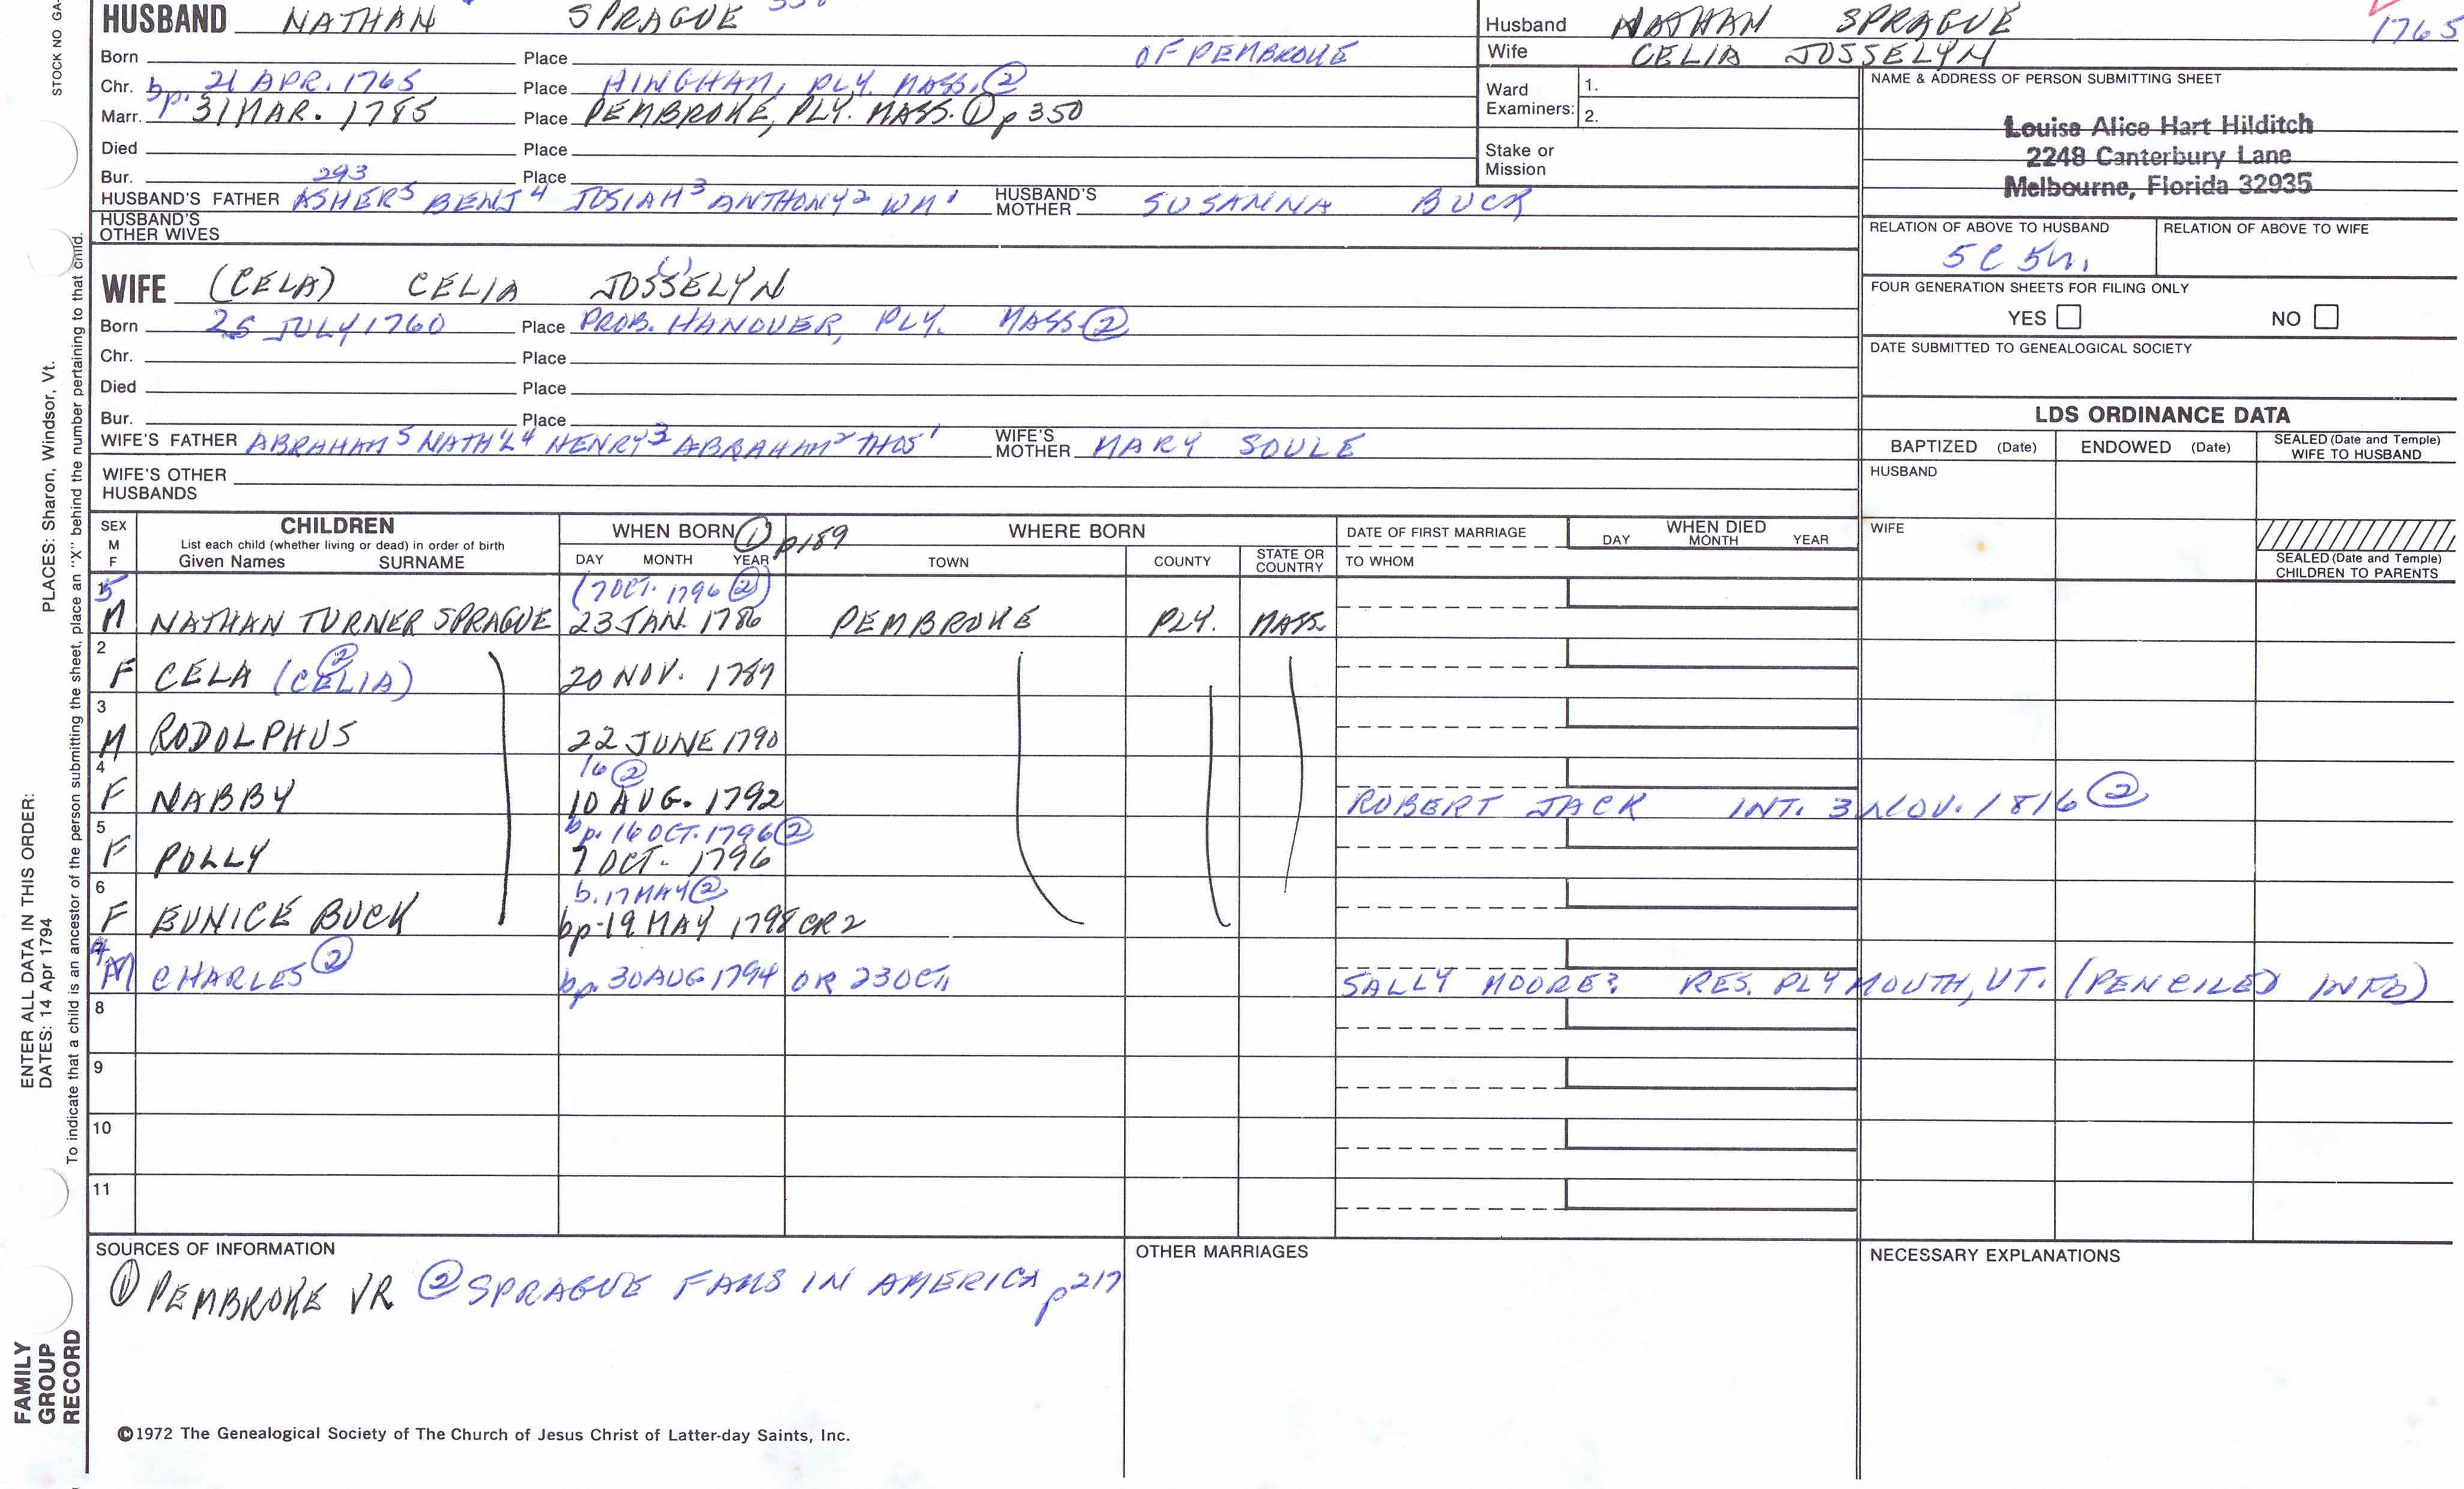 HUSBAND NATHAN SPRAGUE
Husband NATHAN SPRAGUE
1765
Born Place OF PEMBROKE
Wife CELIA JOSSELYN
Chr. bp. 21 APR. 1765 Place HINGHAM, PLY. MASS. ②
Marr. 31 MAR. 1785 Place PEMBROKE, PLY. MASS. ① p 350
Died Place
Bur. Place
293
HUSBAND'S FATHER ASHER5 BENJ4 JOSIAH3 ANTHONY2 WM1 HUSBAND'S MOTHER SUSANNA BUCK
HUSBAND'S OTHER WIVES
Ward Examiners: 1.
2.
Stake or Mission
NAME & ADDRESS OF PERSON SUBMITTING SHEET
Louise Alice Hart Hilditch
2248 Canterbury Lane
Melbourne, Florida 32935
RELATION OF ABOVE TO HUSBAND RELATION OF ABOVE TO WIFE
WIFE (CELA) CELIA JOSSELYN
Born 25 JULY 1760 Place PROB. HANOVER, PLY. MASS ②
Chr. Place
Died Place
Bur. Place
WIFE'S FATHER ABRAHAM5 NATH'L4 HENRY3 ABRAHAM2 THOS1 WIFE'S MOTHER MARY SOULE
WIFE'S OTHER HUSBANDS
FOUR GENERATION SHEETS FOR FILING ONLY
YES NO
DATE SUBMITTED TO GENEALOGICAL SOCIETY
LDS ORDINANCE DATA
BAPTIZED (Date) ENDOWED (Date) SEALED (Date and Temple) WIFE TO HUSBAND
HUSBAND
WIFE
SEALED (Date and Temple) CHILDREN TO PARENTS
SEX M F
CHILDREN
List each child (whether living or dead) in order of birth
Given Names SURNAME
WHEN BORN ① p189
DAY MONTH YEAR
WHERE BORN
TOWN COUNTY STATE OR COUNTRY
DATE OF FIRST MARRIAGE
TO WHOM
WHEN DIED
DAY MONTH YEAR
5 (7 OCT. 1796 ②)
M NATHAN TURNER SPRAGUE 23 JAN. 1786 PEMBROKE PLY. MASS.
2
F CELA (CELIA) ② 20 NOV. 1787
3
M RODOLPHUS 22 JUNE 1790
4 16 ②
F NABBY 10 AUG. 1792 ROBERT JACK INT. 3 NOV. 1816 ②
5 bp. 16 OCT. 1796 ②
F POLLY 7 OCT. 1796
6 b. 17 MAY ②
F EUNICE BUCK bp-19 MAY 1798 CR2
M CHARLES ② bp. 30 AUG 1794 OR 23 OCT. SALLY MOORE? RES. PLYMOUTH, VT. (PENCILED INFO)
8
9
10
11
SOURCES OF INFORMATION
① PEMBROKE VR ② SPRAGUE FAMS IN AMERICA p217
OTHER MARRIAGES
NECESSARY EXPLANATIONS
©1972 The Genealogical Society of The Church of Jesus Christ of Latter-day Saints, Inc.
STOCK NO GA-
PLACES: Sharon, Windsor, Vt.
ENTER ALL DATA IN THIS ORDER:
DATES: 14 Apr 1794
To indicate that a child is an ancestor of the person submitting the sheet, place an "X" behind the number pertaining to that child.
FAMILY
GROUP
RECORD